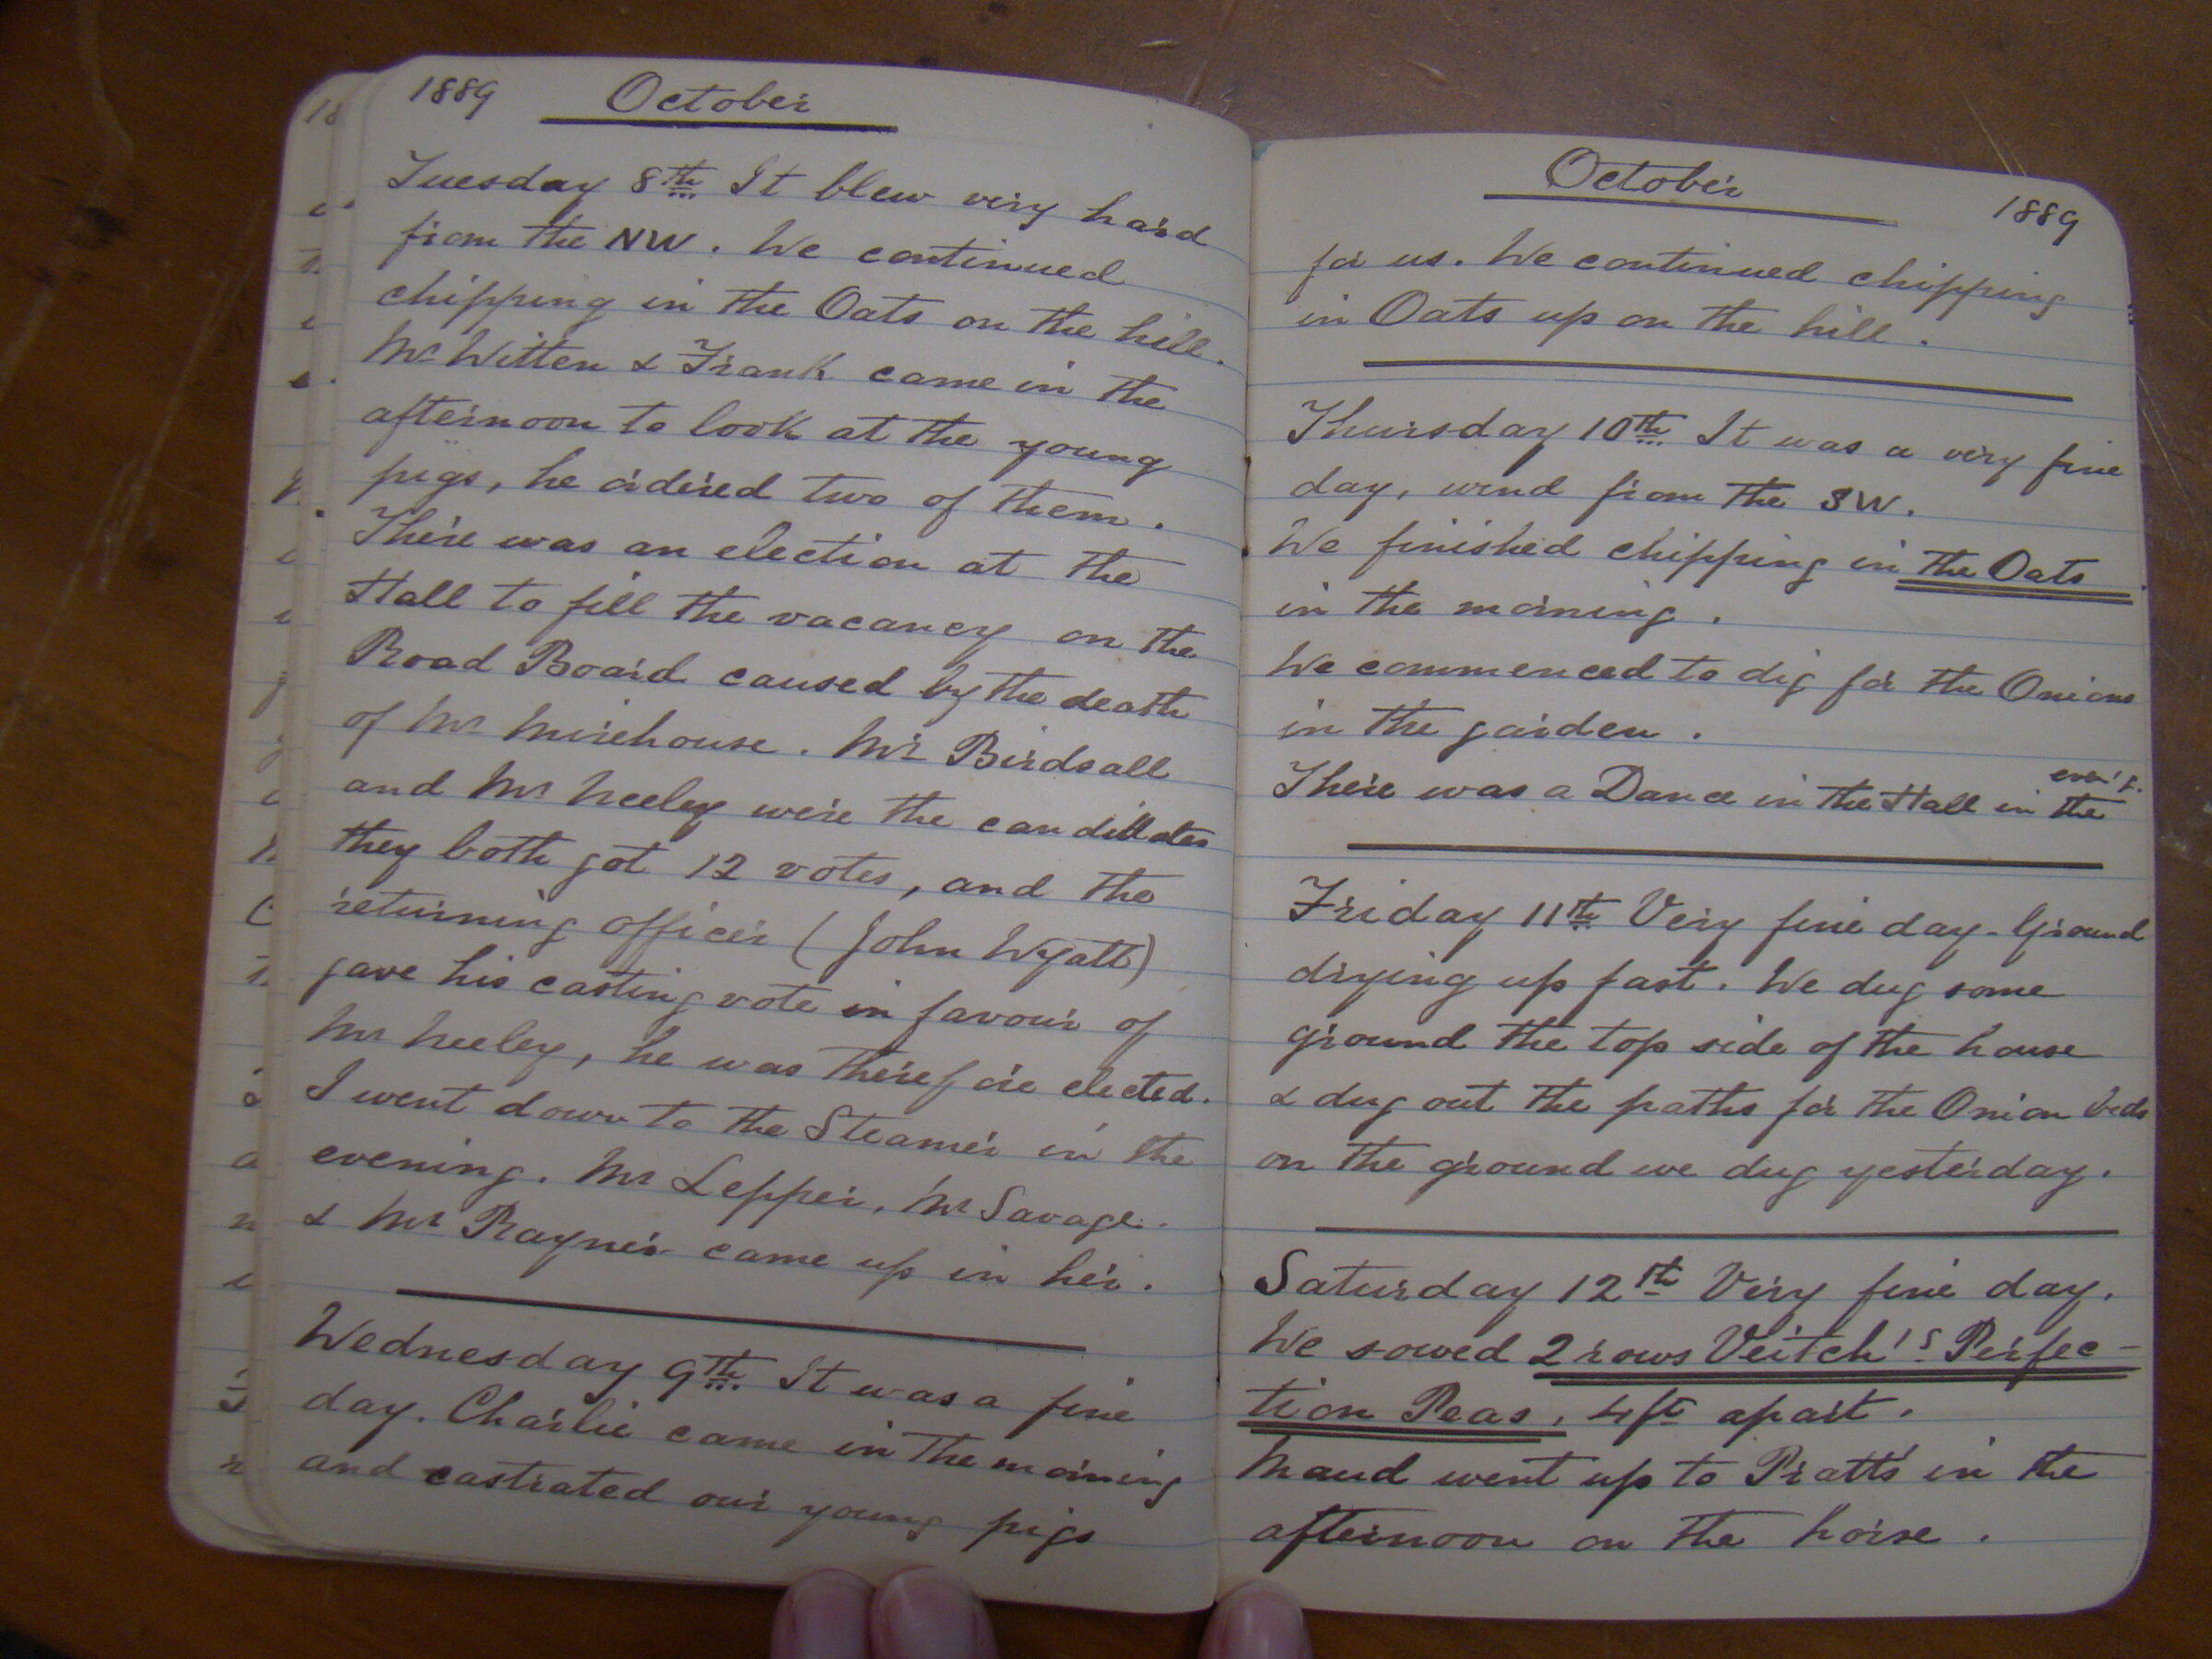 1889 October
Tuesday 8th It blew very hard
from the NW. We continued
chipping in the Oats on the hill.
Mr Witten & Frank came in the
afternoon to look at the young
pigs, he ordered two of them.
There was an election at the
Hall to fill the vacancy on the
Road Board caused by the death
of Mr Mirehouse. Mr Birdsall
and Mr Neeley were the candidates
they both got 12 votes, and the
returning officer (John Wyatt)
gave his casting vote in favour of
Mr Neeley, he was therefore elected.
I went down to the Steamer in the
evening. Mr Lepper, Mr Savage.
& Mr Rayner came up in her.
Wednesday 9th It was a fine
day. Charlie came in the morning
and castrated our young pigs
October 1889
for us. We continued chipping
in Oats up on the hill.
Thursday 10th It was a very fine
day, wind from the SW.
We finished chipping in the Oats
in the morning.
We commenced to dig for the Onions
in the garden.
There was a Dance in the Hall in the even'g.
Friday 11th Very fine day - Ground
drying up fast. We dug some
ground the top side of the house
& dug out the paths for the Onion beds
on the ground we dug yesterday.
Saturday 12th Very fine day.
We sowed 2 rows Veitch's Perfec-
tion Peas, 4ft apart.
Maud went up to Pratts' in the
afternoon on the horse.